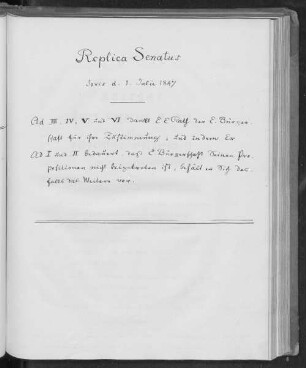 Replica Senatus
Jovis d. 1. Julii 1847
Ad III, IV, V und VI dankt E. E. Rath der E. Bürger-
schaft für ihre Zustimmung, und indem Er
Ad I und II bedauert, daß E. Bürgerschaft Seinen Pro-
positionen nicht beigetreten ist, behält er Sich des-
falls das Weitere vor.